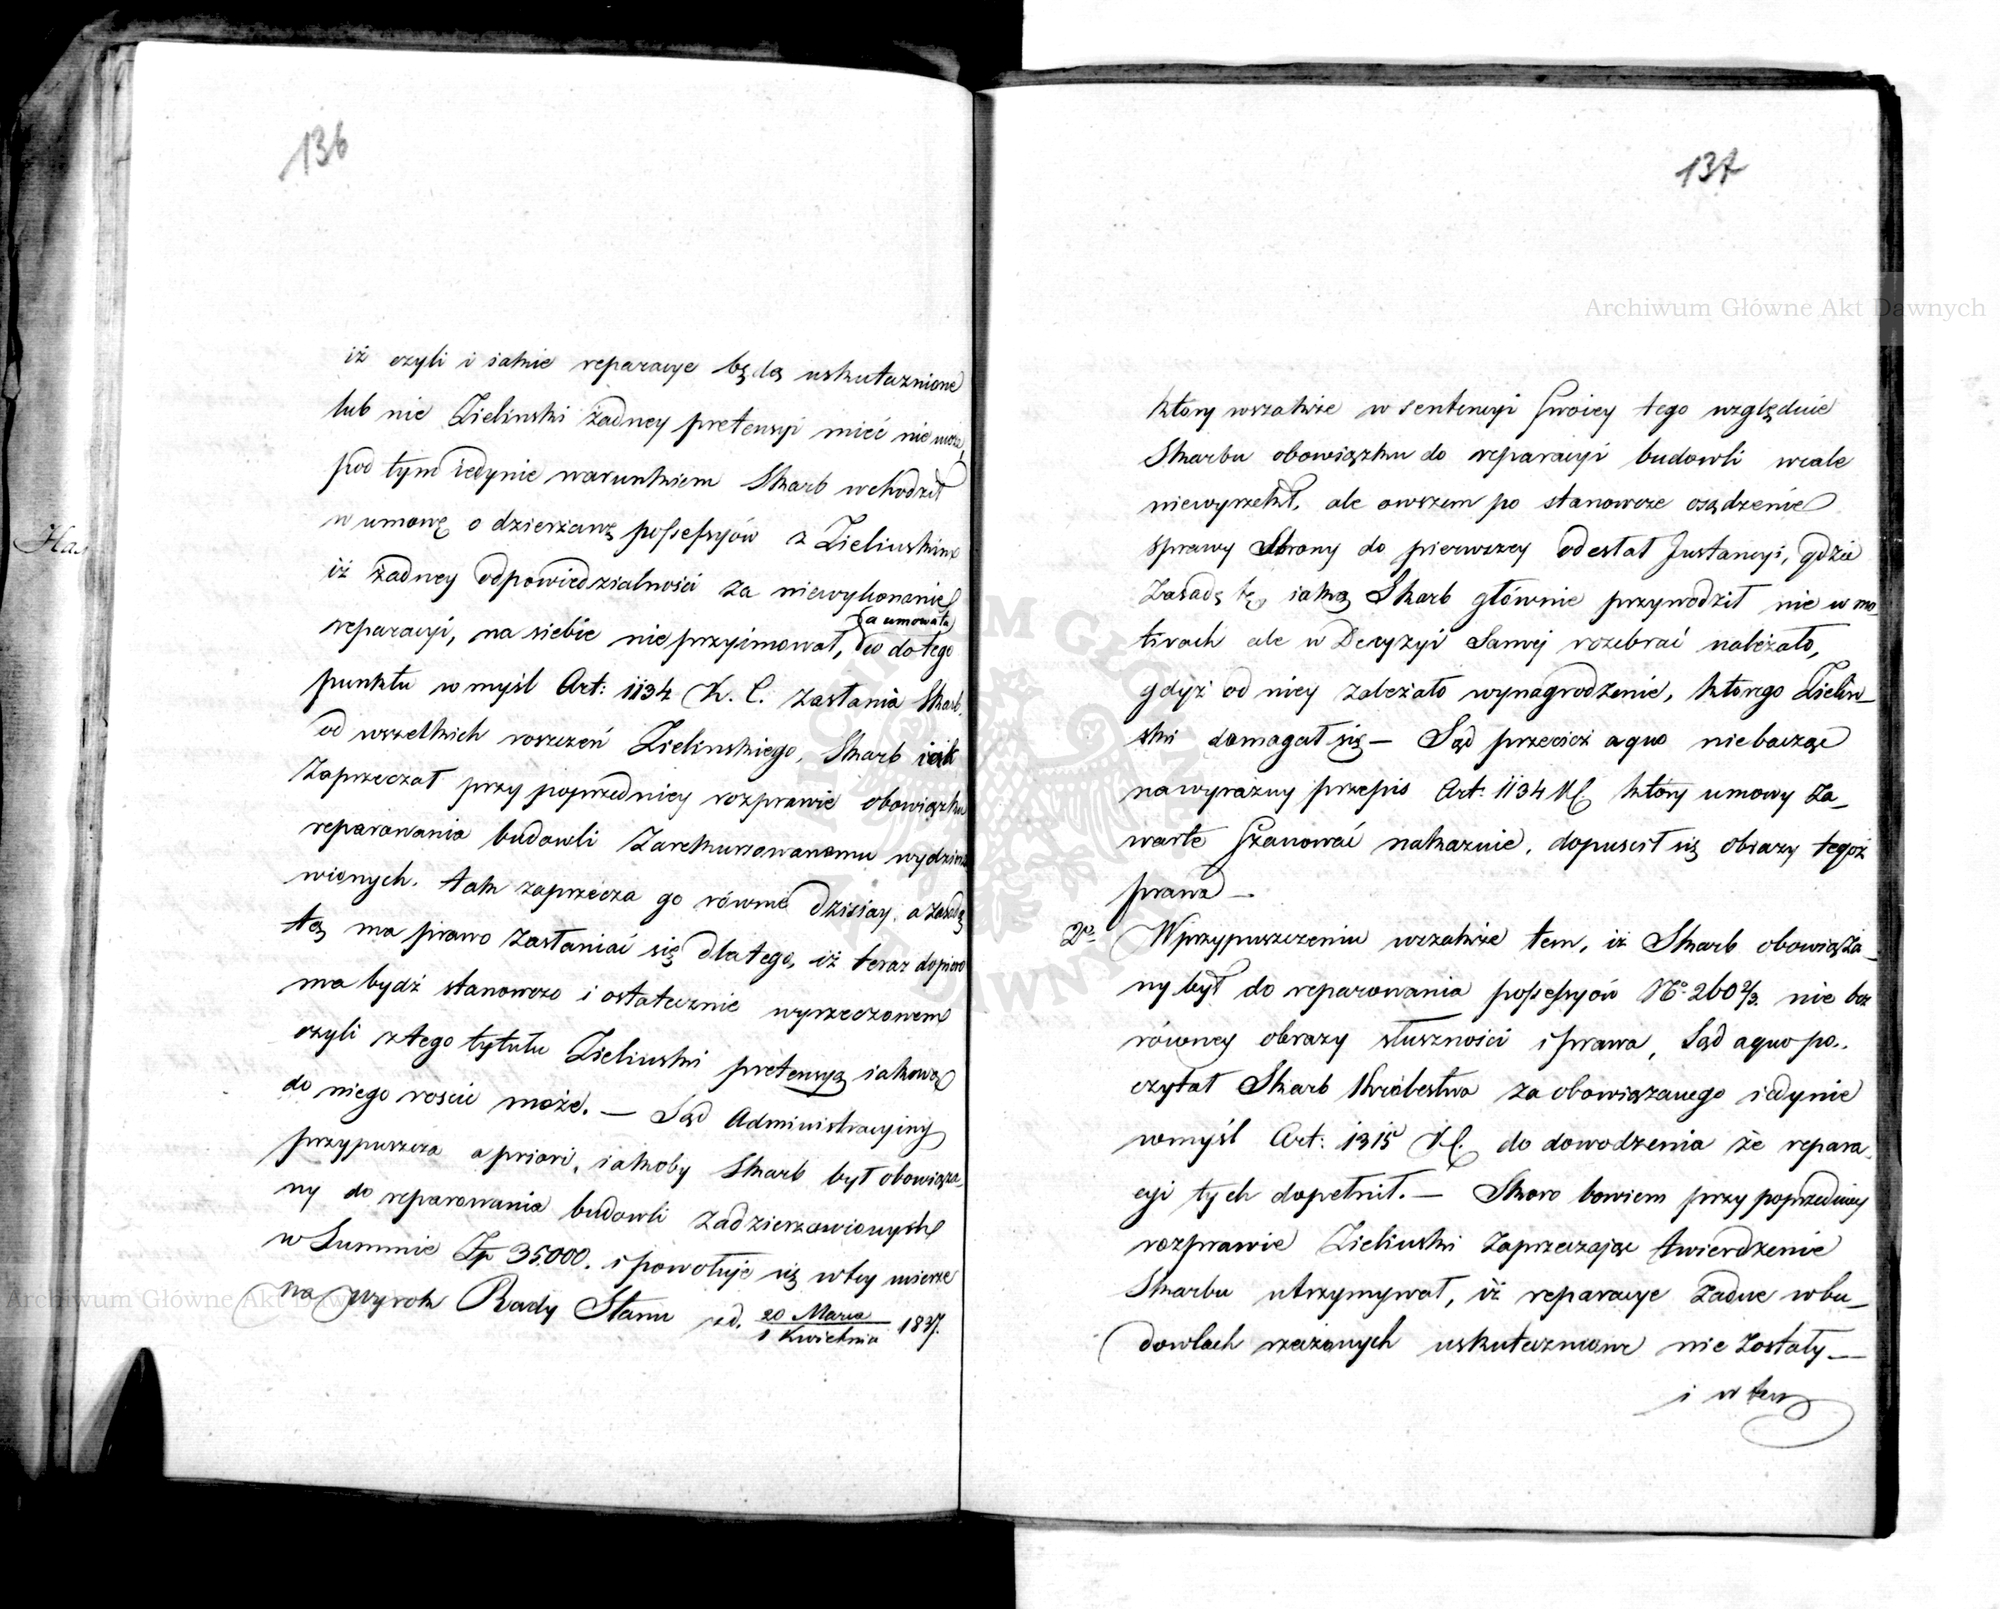 136
iż czyli i jakie reparacye będą uskutecznione
lub nie Zielinski żadney pretensyi mieć nie może,
pod tym iedynie warunkiem Skarb wchodził
w umowę o dzierżawę possessyów z Zielinskim
iż żadney odpowiedzialności za niewykonanie
reparacyi, na siebie nie przyimował,
a umowa ta
co do tego
punktu w myśl Art: 1134 K. C. zasłania Skarb
od wszelkich roszczeń Zielinskiego, Skarb iak
zaprzeczał przy poprzedniey rozprawie obowiązku
reparowania budowli Zarekursowanemu wydzierża
wionych. tak zaprzecza go równie dzisiay, a zasadą
tą ma prawo zasłaniać się dlatego, iż teraz dopiero
ma bydź stanowczo i ostatecznie wyrzeczonem
czyli z tego tytułu Zielinski pretensyą iakową
do niego rościć może. — Sąd Administracyiny
przypuszcza a priori, iakoby Skarb był obowiąza-
ny do reparowania budowli zadzierżawionych
w Summie Zp 35.000. i powołuje się w tey mierze
na Wyrok Rady Stanu z d. 20 Marca / 1 Kwietnia 1837.
137
który wszakże w sentencyi swoiey tego względnie
Skarbu obowiązku do reparacyi budowli wcale
niewyrzekł, ale owszem po stanowcze osądzenie
sprawy Strony do pierwszey odesłał Instancyi, gdzie
Zasadę tę iaką Skarb głównie przywodził nie w mo-
tivach ale w Decyzyi samej rozebrać należało,
gdyż od niey zależało wynagrodzenie, którego Zielin-
ski domagał się — Sąd przecież a quo niebacząc
na wyraźny przepis Art. 1134 KC. który umowy za-
warte szanować nakazuie, dopuścił się obrazy tegoż
prawa —
2o. W przypuszczeniu wszakże tem, iż Skarb obowiąza-
ny był do reparowania possessyów No. 260 2/3. nie bez
równey obrazy słuszności i prawa, Sąd a quo po-
czytał Skarb Królestwa za obowiązanego iedynie
w myśl Art: 1315 KC. do dowodzenia że repara-
cyi tych dopełnił. — Skoro bowiem przy poprzedniey
rozprawie Zielinski zaprzeczając twierdzenie
Skarbu utrzymywał, iż reparacye żadne w bu-
dowlach rzeczonych uskutecznione nie zostały —
i w tem
Archiwum Główne Akt Dawnych
Archiwum Główne Akt Dawnych